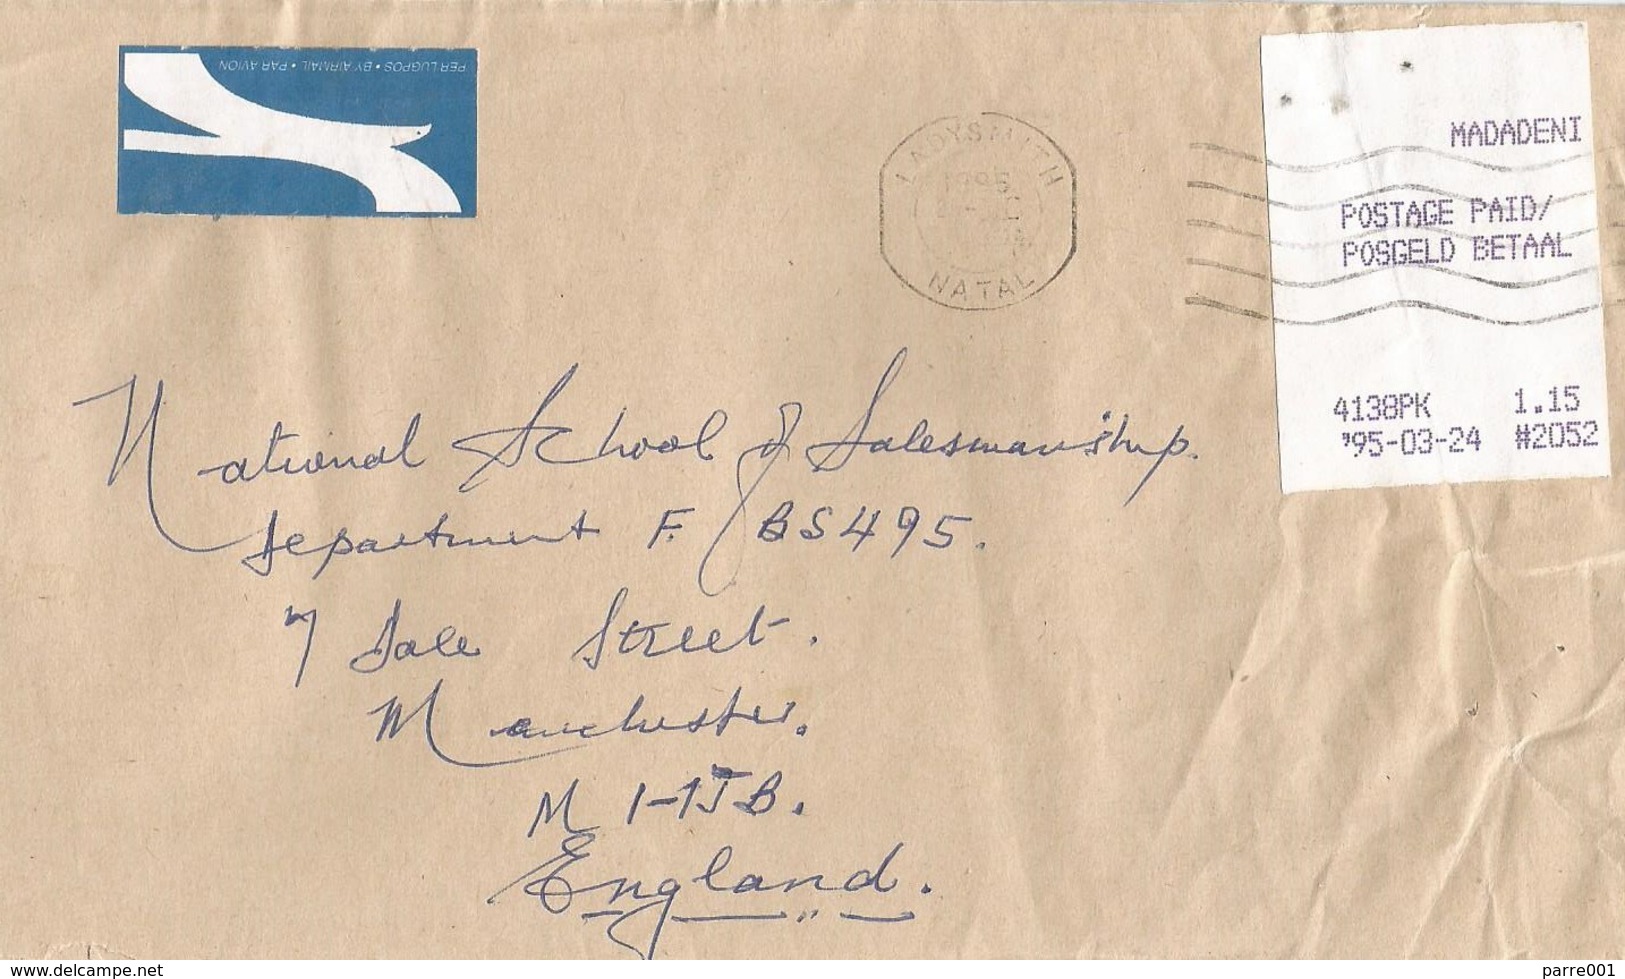 PER LUGPOS • BY AIRMAIL • PAR AVION
LADYSMITH
1995
NATAL
MADADENI
POSTAGE PAID/
POSGELD BETAAL
4138PK 1.15
'95-03-24 #2052
National School of Salesmanship.
Department F. BS495.
7 Sale Street.
Manchester.
M 1-1JB.
England.
www.delcampe.net
parre001